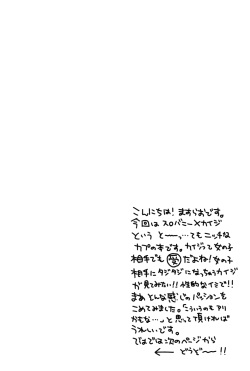 こんにちは！ますらおです。
今回はスロバニー×カイジ
という とーっ…てもニッチな
カプの本です。カイジって女の子
相手でも 受 だよね！女の子
相手にタジタジになっちゃうカイジ
が見てみたい!!性的なイミで!!
まぁ そんな感じのパッションを
こめてみました。「こういうのも アリ
かもな…」と思って頂ければ
うれしいです。
ではでは次のページから
← どうぞ〜!!